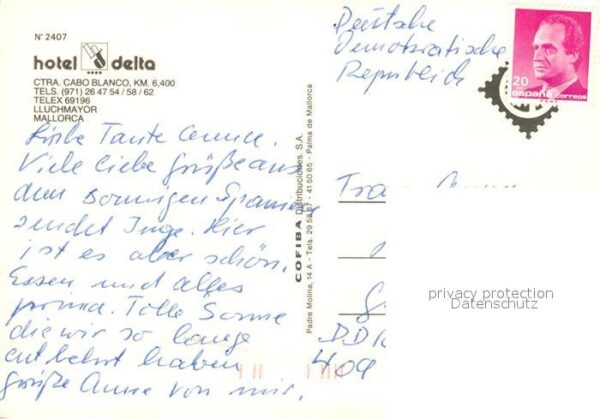 Nº 2407
hotel delta
CTRA. CABO BLANCO, KM. 6,400
TELS. (971) 26 47 54 / 58 / 62
TELEX 69196
LLUCHMAYOR
MALLORCA
Liebe Tante
Viele liebe Grüße aus
dem sonnigen Spanien
sendet Inge. Hier
ist es aber schön.
Essen und alles
prima. Tolle Sonne
die wir so lange
entbehrt haben
Grüße von mir.
COFIBA Distribuciones, S.A.
Padre Molina, 14 A - Tels. 29 52 87 - 41 50 65 - Palma de Mallorca
Deutsche
Demokratische
Republik
20
españa correos
409
privacy protection
Datenschutz